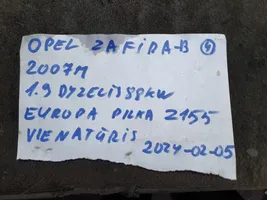 OPEL ZAFIRA-B 4
2007M
1.9 DYZELIS 88KW
EUROPA PILKA Z155
VIENATŪRIS
2024-02-05